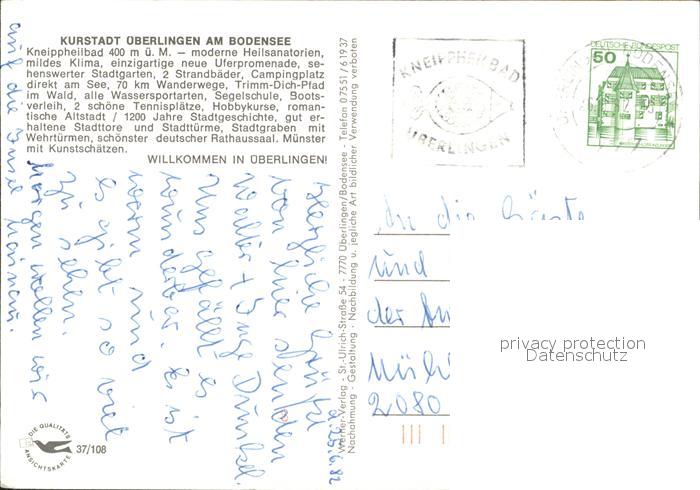 KURSTADT ÜBERLINGEN AM BODENSEE
Kneippheilbad 400 m ü. M. – moderne Heilsanatorien,
mildes Klima, einzigartige neue Uferpromenade, se-
henswerter Stadtgarten, 2 Strandbäder, Campingplatz
direkt am See, 70 km Wanderwege, Trimm-Dich-Pfad
im Wald, alle Wassersportarten, Segelschule, Boots-
verleih, 2 schöne Tennisplätze, Hobbykurse, roman-
tische Altstadt / 1200 Jahre Stadtgeschichte, gut er-
haltene Stadttore und Stadttürme, Stadtgraben mit
Wehrtürmen, schönster deutscher Rathaussaal. Münster
mit Kunstschätzen.
WILLKOMMEN IN ÜBERLINGEN!
d. 25.6.82
Herzliche Grüße
von hier senden
Walter + Inge Dünkel.
Uns gefällt es
wunderbar. Es ist
warm und
es gibt so viel
zu sehen.
Morgen wollen wir
auf die Insel Mainau.
Werner-Verlag - St.-Ulrich-Straße 54 - 7770 Überlingen/Bodensee - Telefon 07551/61937
Nachahmung - Gestaltung - Nachbildung u. jegliche Art bildlicher Verwendung verboten
DIE QUALITÄTS
ANSICHTSKARTE
37/108
KNEIPPHEILBAD
ÜBERLINGEN
DEUTSCHE BUNDESPOST
50
An die
und
der
2080
privacy protection
Datenschutz